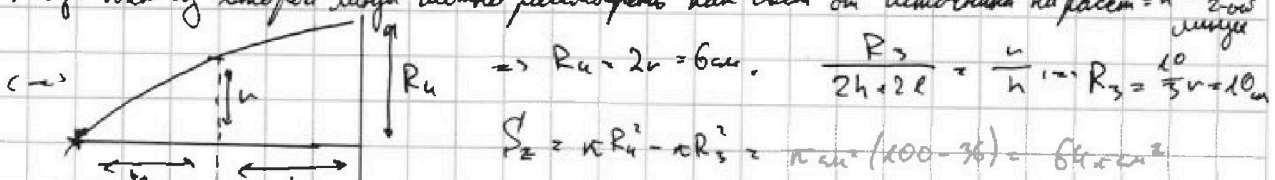 второй линзы можно рассмотреть как свет от источника на расст = 2-ой
линзы
(→)
r
R₄
=> R₄ = 2r = 6 см.
R₃ / (2h+2l) = r / h => R₃ = 10/3 r = 10 см
S₂ = πR₄² - πR₃² = π см² (100-36) = 64π см²
h